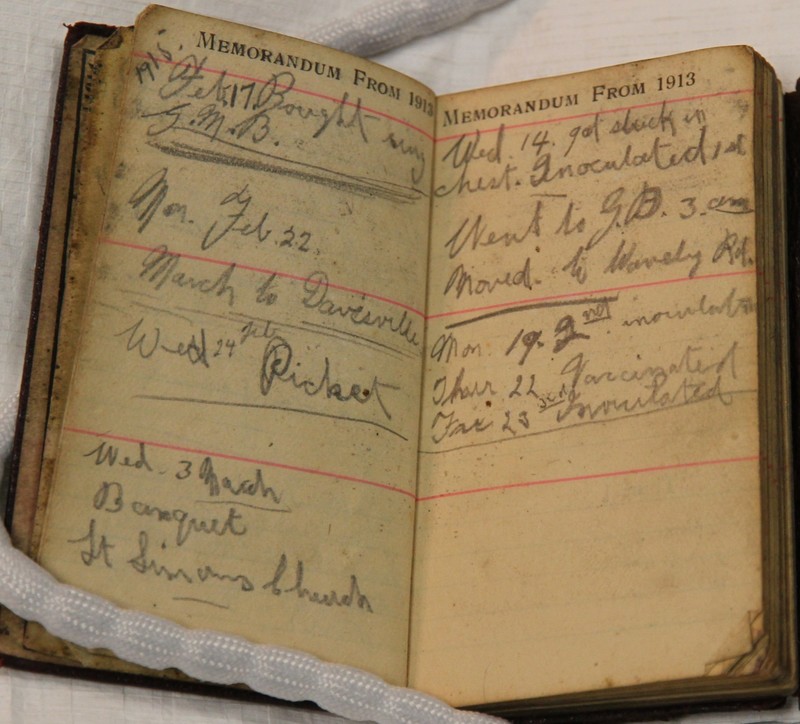 MEMORANDUM FROM 1913
1915.
Feb. 17. Bought ring
G.M.B.
Mon. Feb. 22
March to Davisville
Wed 24 Feb Picket
Wed. 3 March
Banquet
St Simons Church
MEMORANDUM FROM 1913
Wed. 14. got stuck in
chest. Inoculated 1st
Went to G.B. 3. am
Moved. to Wavely Rd.
Mon. 19. 2nd inoculation
Thur 22 Vaccinated
Fri 23 3rd Inoculated